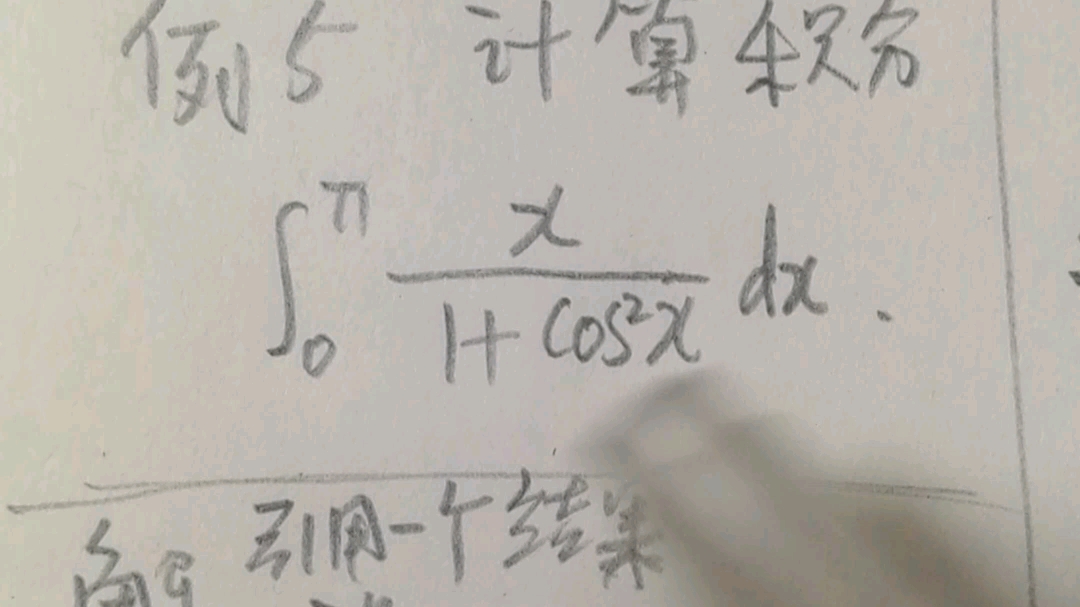 例5 计算积分
∫₀^π x/(1+cos²x) dx.
解 引用一个结果